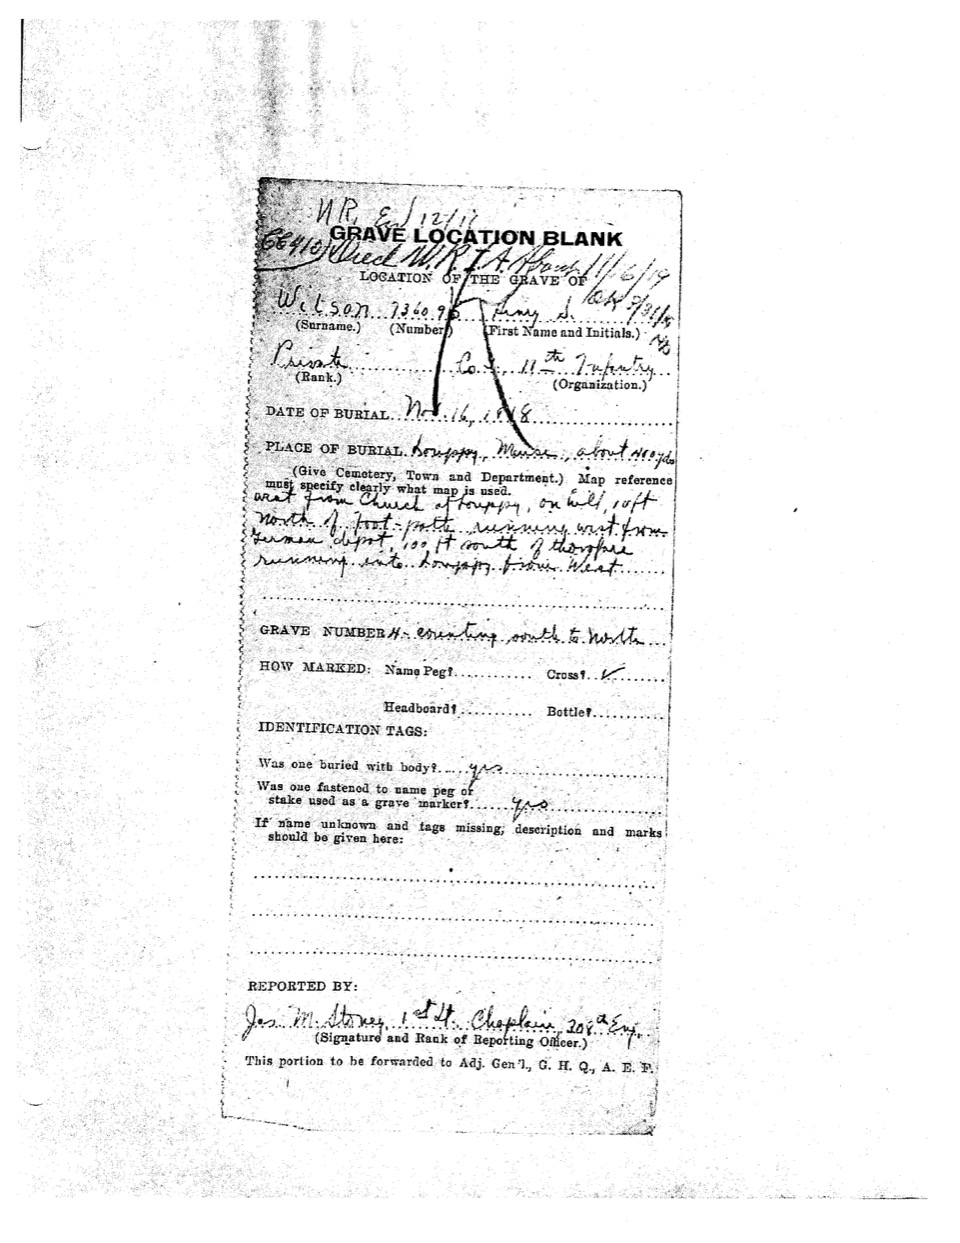 N.R. End 12/17
GRAVE LOCATION BLANK
Died 11/6/19
LOCATION OF THE GRAVE OF
Wilson 736095 S.
(Surname.) (Number) (First Name and Initials.)
Private Co. 11th Infantry
(Rank.) (Organization.)
DATE OF BURIAL Nov. 16, 1918
PLACE OF BURIAL Louppy, Meuse, about 400 yds
(Give Cemetery, Town and Department.) Map reference
must specify clearly what map is used.
west from Church of Louppy, on hill, 10 ft
North of foot-path running west from
German depot, 100 ft south of
running into Louppy from West
GRAVE NUMBER 4- counting south to North
HOW MARKED: Name Peg? Cross? ✓
Headboard? Bottle?
IDENTIFICATION TAGS:
Was one buried with body? yes
Was one fastened to name peg or
stake used as a grave marker? yes
If name unknown and tags missing, description and marks
should be given here:
REPORTED BY:
Jas. M. Stoney, 1st Lt. Chaplain, 208th Eng.
(Signature and Rank of Reporting Officer.)
This portion to be forwarded to Adj. Gen'l., G. H. Q., A. E. F.